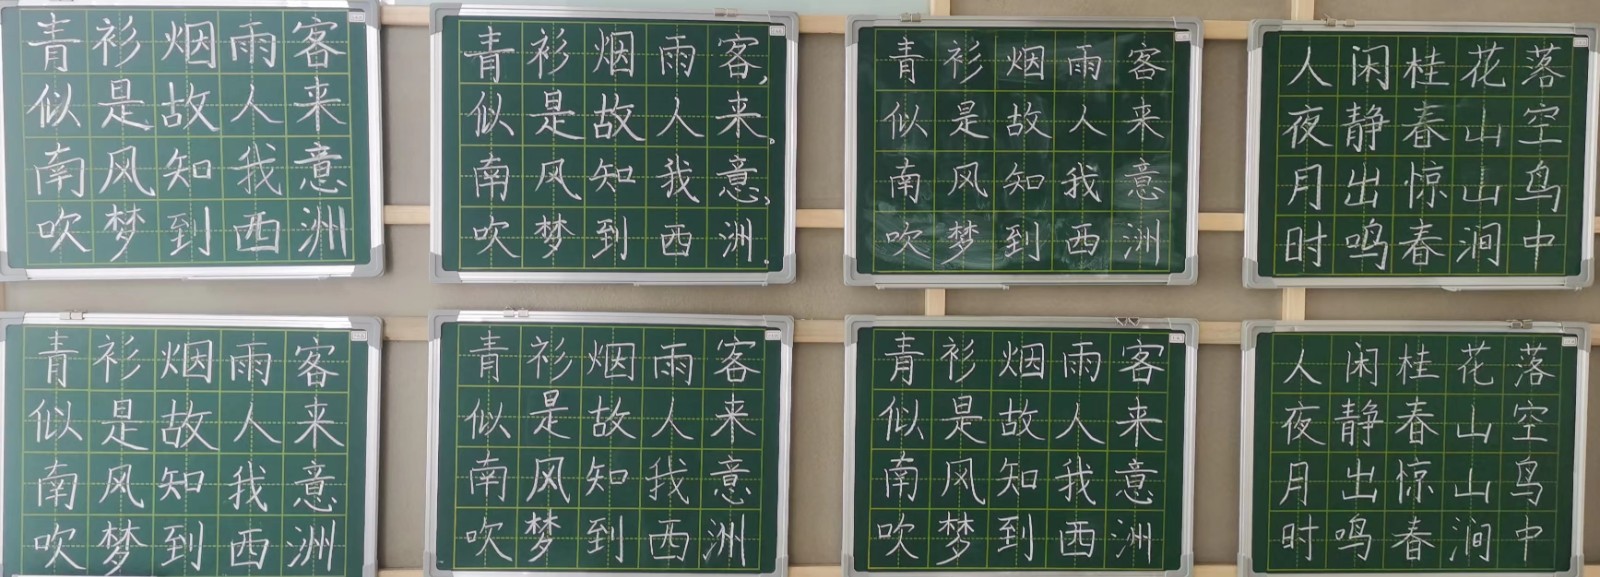 青衫烟雨客
似是故人来
南风知我意
吹梦到西洲
青衫烟雨客，
似是故人来。
南风知我意，
吹梦到西洲.
青衫烟雨客
似是故人来
南风知我意
吹梦到西洲
人闲桂花落
夜静春山空
月出惊山鸟
时鸣春涧中
青衫烟雨客
似是故人来
南风知我意
吹梦到西洲
青衫烟雨客
似是故人来
南风知我意
吹梦到西洲
青衫烟雨客
似是故人来
南风知我意
吹梦到西洲
人闲桂花落
夜静春山空
月出惊山鸟
时鸣春涧中